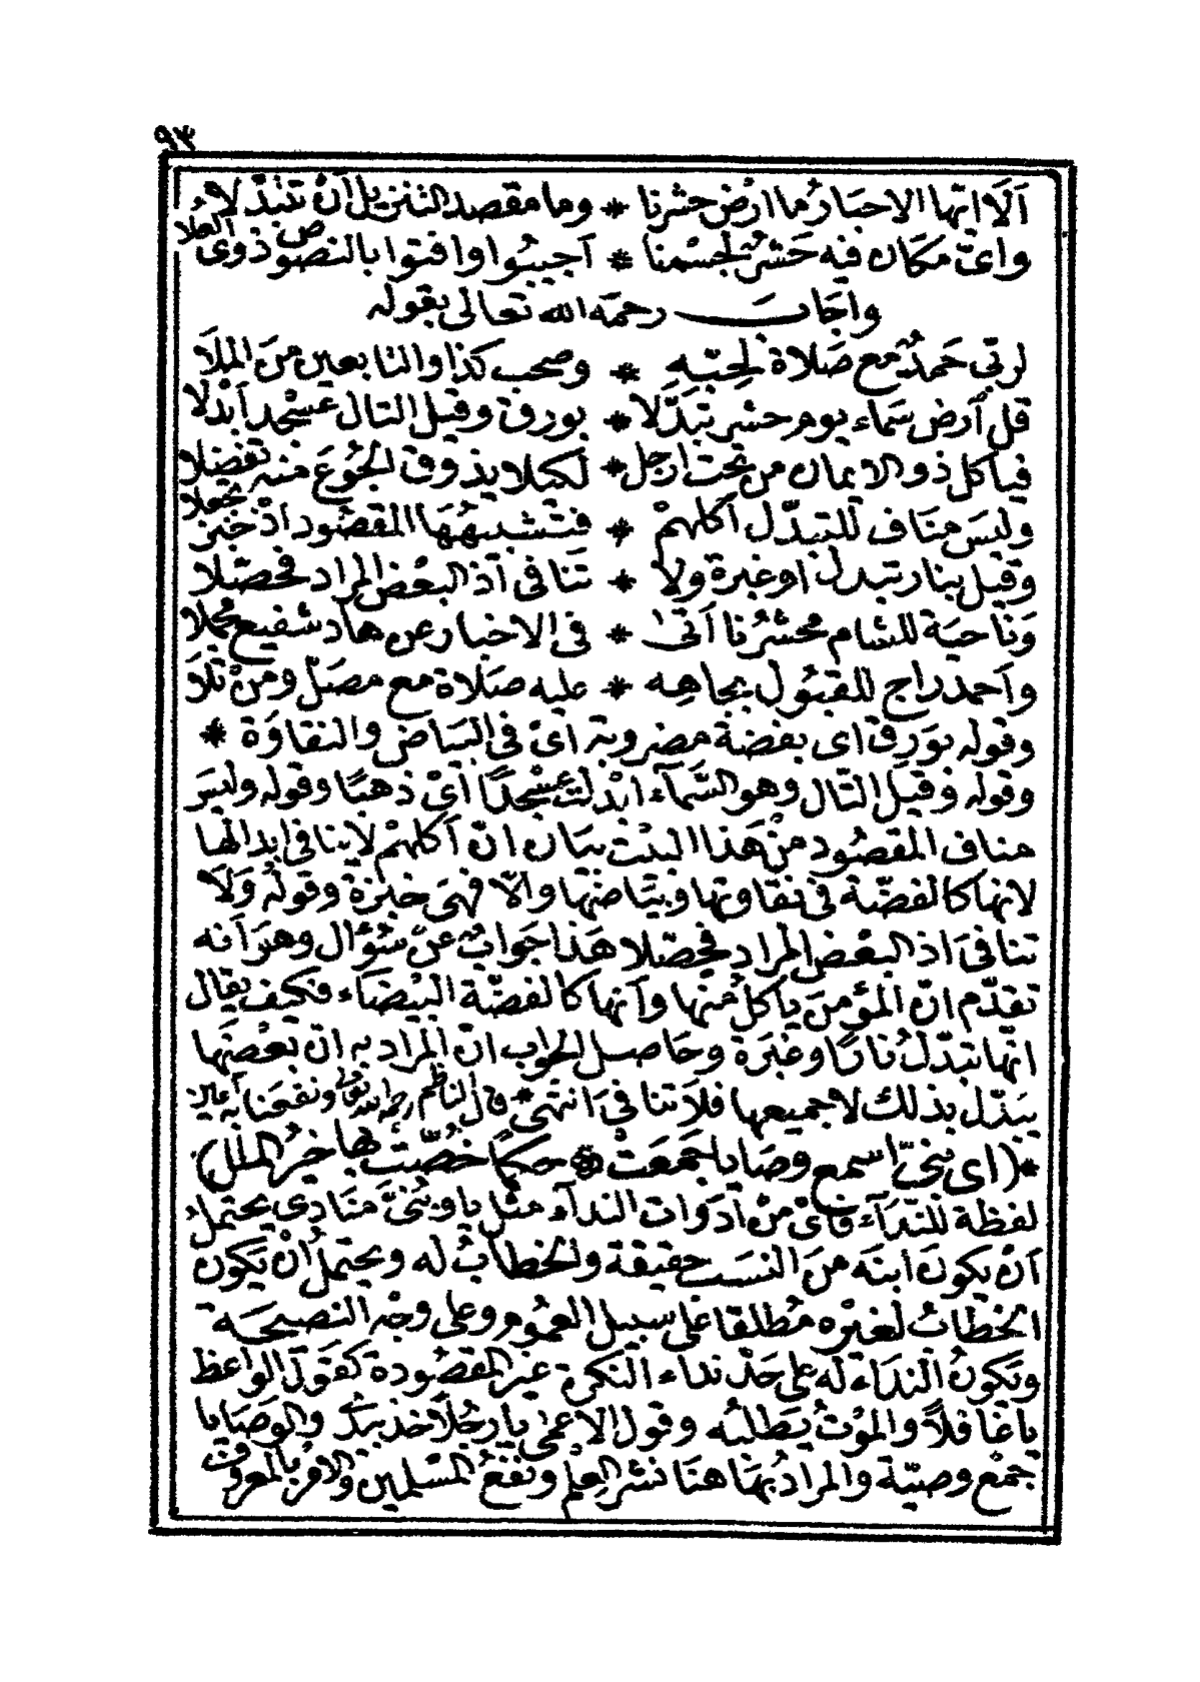 ٩٣
اَلَا ايّها الاحبار ما ارْض حشرنا * وما مقصد التنزيل أنْ تتبدّلا
وايّ مكان فيه حَشرٌ لجسْمنا * اَجيبُوا وافتوا بالنصوص ذوى العلا
واجَابَ رحمه الله تعالى بقوله
لربّى حَمدٌ مع صَلاة لحبّهِ * وصحب كذا والتابعين منَ الملَا
قل أرض سَماء يوم حشر تبَدّلا * بورق وقيل التال عسْجد ابْدلا
فيأكل ذو الايمان من تحت ارجل * لكيلا يذوق الجُوعَ منه تفضلا
وليسَ مناف للتبدّل اَكلهمْ * فتشبيهُهَا المقصُود اذْ خبز تجعلا
وقيل بنار تبدل او غبرة ولا * تَنافى اَذ البعْض المراد فحصّلا
وَناحيَة للشام محشرُنا اَتى * فى الاخبار عن هاد شفيع مجملا
واَحمد راج للقبُول بجاهِه * عليه صَلاة مع مصَلّ ومنْ تلَا
وقوله بوَرِق اى بفضة مضروبة اىْ فى البيَاض والنقاوَة *
وقوله وَقيلَ التّال وهو السَّمآء ابْدلت عسْجدًا اىْ ذهبًا وقوله وليسَ
مناف المقصُود منْ هَذا البيْت بيَان انّ اَكلهمْ لَاينافى ابدالها
لانها كالفضّة فى نقاوتها وبيَاضها والّا فهىَ خبزة وقولُه وَلَا
تنافىَ اذ البعْض المراد فحصّلا هَذا جَوابٌ عنْ سُؤال وهوَ اَنه
تقدّم انّ المؤمنَ يأكلُ منها واَنها كالفضّة البيْضَاء فكيف يقال
انّها تبدّلُ نارًا وغبَرة وحَاصل الجواب انّ المرَاد به انّ بَعْضهَا
يبَدّل بذلك لا جميعها فلَا تنافىَ انتهى * قال الناظم رحمه الله تعالى ونفعنا به آمين
* (اى بُنىّ اسمع وصَايا جَمعَتْ * حكمًا خُصّتْ بها خيرُ الملل)
لفظة للندَآء فأىْ منْ اَدَوات الندآء مثل يا وبُنىَّ منَادى يحتملُ
اَنْ يكونَ ابنَه منَ النسَب حقيقة والخطابُ له ويحتملُ اَنْ يَكون
الخطابُ لغيْره مُطلقا على سبيل العمُوم وعلى وجْه النصيحَة
وتَكونُ الندَاء له على حَدّ نداء النكرة غير المقصُودة كقول الواعظ
ياغَافلًا والموْتُ يَطلبُه وقول الاعمى يارَجُلًا خذ بيَدى والوصَايا
جمْع وصيّة والمرادُ بهَا هنَا نشر العِلم ونفعُ المسْلمين والامرُ بالمعروف